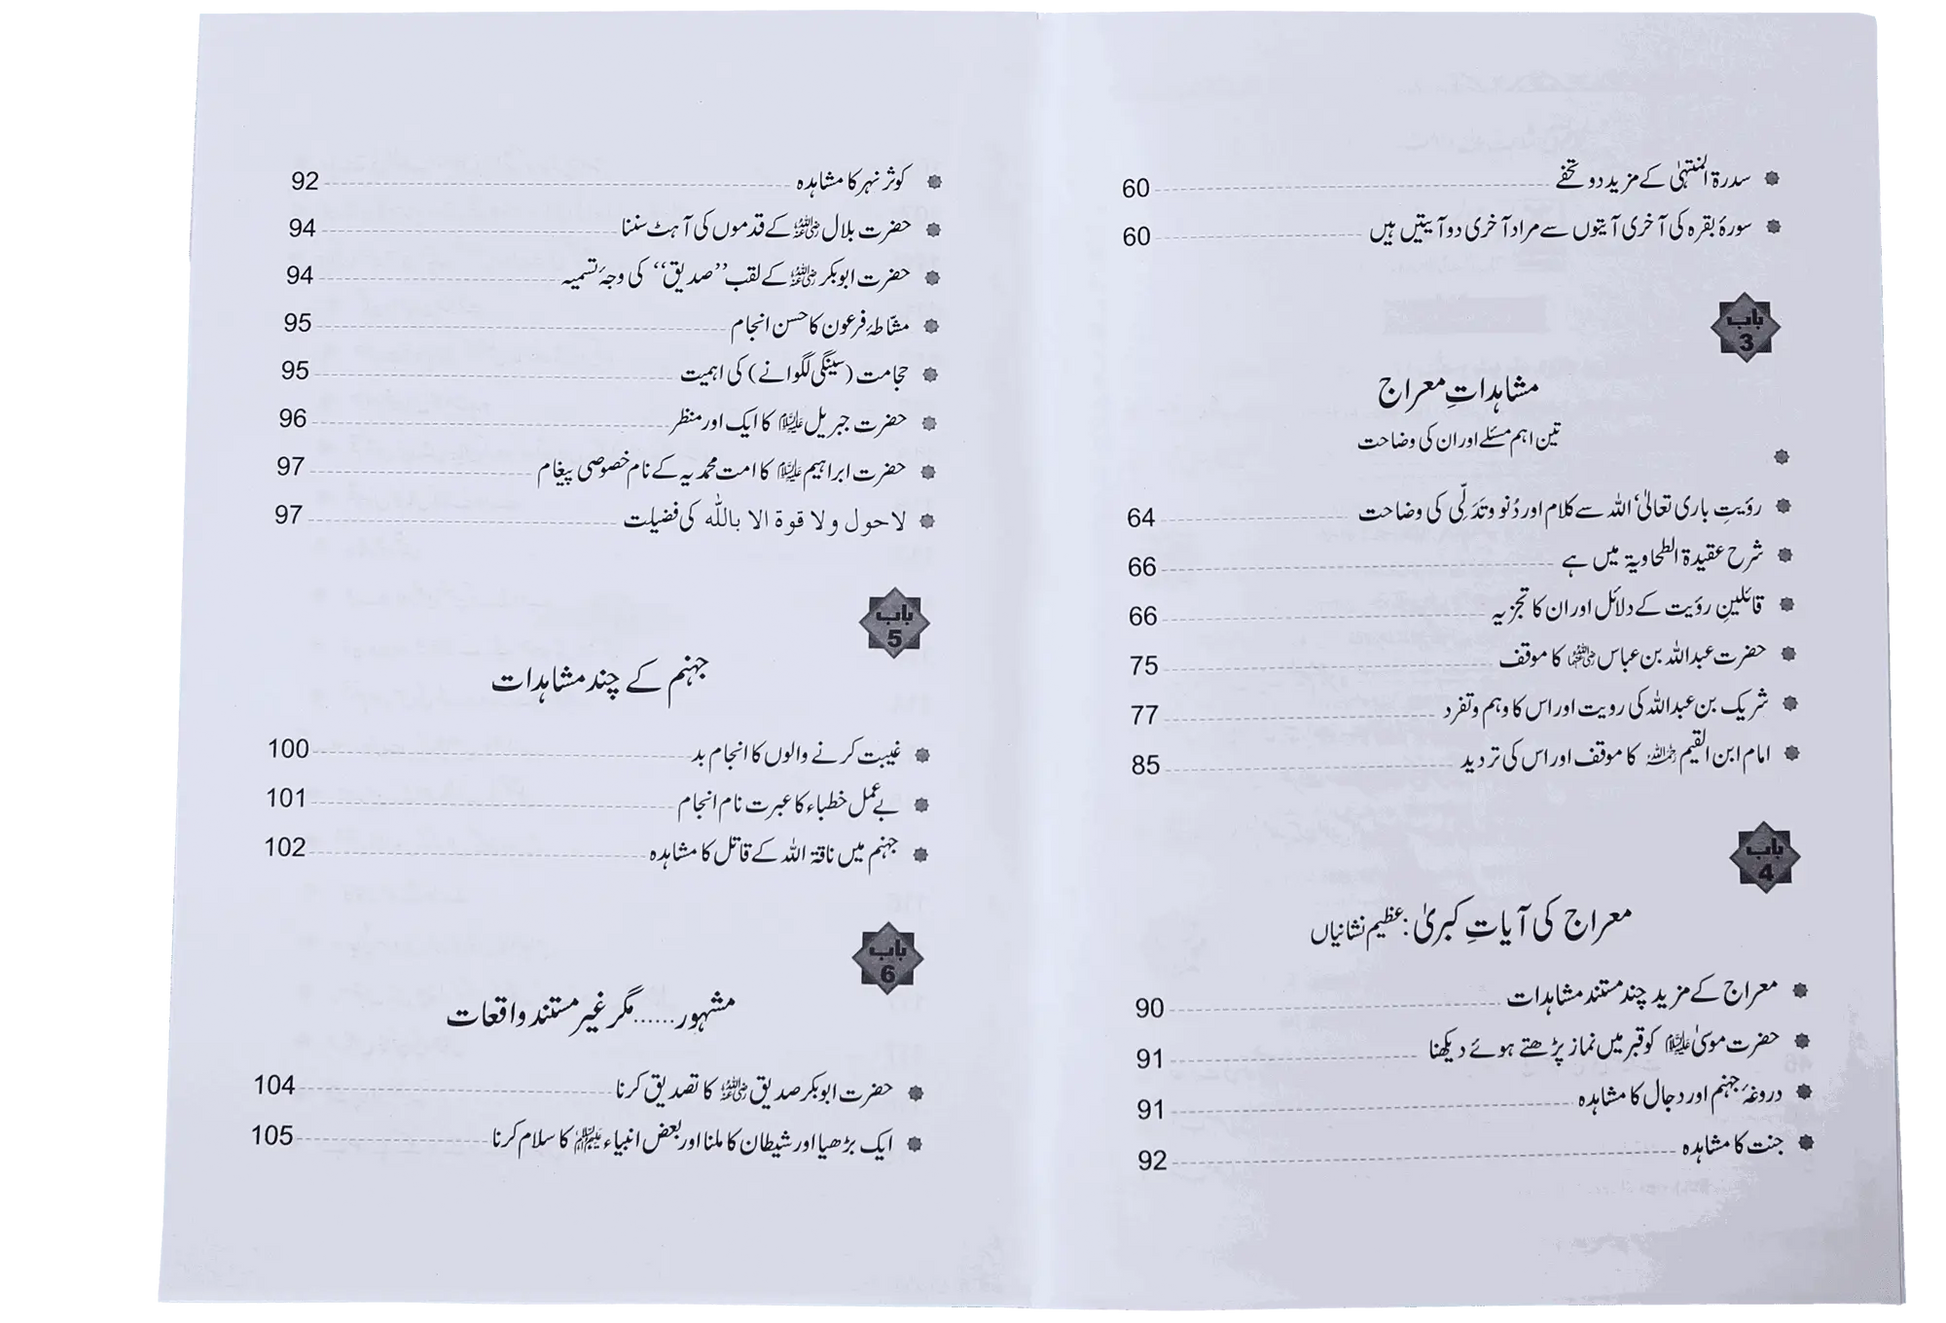 سدرۃ المنتہیٰ کے مزید دو تحفے 60
سورۂ بقرہ کی آخری آیتوں سے مراد آخری دو آیتیں ہیں 60
باب 3
مشاہداتِ معراج
تین اہم مسئلے اور ان کی وضاحت
رؤیتِ باری تعالیٰ‘ اللہ سے کلام اور دُنو و تَدَلّی کی وضاحت 64
شرح عقیدۃ الطحاویۃ میں ہے 66
قائلینِ رؤیت کے دلائل اور ان کا تجزیہ 66
حضرت عبداللہ بن عباس رضی اللہ عنہما کا موقف 75
شریک بن عبداللہ کی رویت اور اس کا وہم و تفرد 77
امام ابن القیم رحمہ اللہ کا موقف اور اس کی تردید 85
باب 4
معراج کی آیاتِ کبریٰ: عظیم نشانیاں
معراج کے مزید چند مستند مشاہدات 90
حضرت موسیٰ علیہ السلام کو قبر میں نماز پڑھتے ہوئے دیکھنا 91
دروغۂ جہنم اور دجال کا مشاہدہ 91
جنت کا مشاہدہ 92
کوثر نہر کا مشاہدہ 92
حضرت بلال رضی اللہ عنہ کے قدموں کی آہٹ سننا 94
حضرت ابوبکر رضی اللہ عنہ کے لقب ’’صدیق‘‘ کی وجۂ تسمیہ 94
مشّاطۂ فرعون کا حسن انجام 95
حجامت (سینگی لگوانے) کی اہمیت 95
حضرت جبریل علیہ السلام کا ایک اور منظر 96
حضرت ابراہیم علیہ السلام کا امت محمدیہ کے نام خصوصی پیغام 97
لاحول ولا قوة الا باللّٰه کی فضیلت 97
باب 5
جہنم کے چند مشاہدات
غیبت کرنے والوں کا انجام بد 100
بے عمل خطباء کا عبرت نام انجام 101
جہنم میں ناقۃ اللہ کے قاتل کا مشاہدہ 102
باب 6
مشہور......مگر غیر مستند واقعات
حضرت ابوبکر صدیق رضی اللہ عنہ کا تصدیق کرنا 104
ایک بڑھیا اور شیطان کا ملنا اور بعض انبیاء علیہم السلام کا سلام کرنا 105